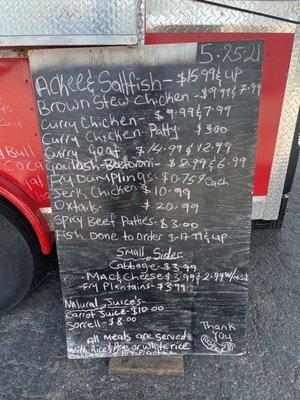 5-25-21
Ackee & Saltfish- $15.99 & up
Brown Stew Chicken - $9.99 & 7.99
Curry Chicken- $9.99 & 7.99
Curry Chicken-Patty $3.00
Curry Goat $14.99 & 12.99
Goulash-Beefaroni- $8.99 & 6.99
Fry Dumplings $0.75¢ each
Jerk Chicken $10.99
Oxtails $20.99
Spicy Beef Patties- $3.00
Fish Done to Order 3-17.99 & up
Small Sides
Cabbage- $3.99
Mac & Cheese $3.99 &
Fry Plantains- $3.99
Natural Juice's-
Carrot Juice-$10.00
Sorrell- $8.00
All meals are served
with Rice & Peas or White rice
Thank
you